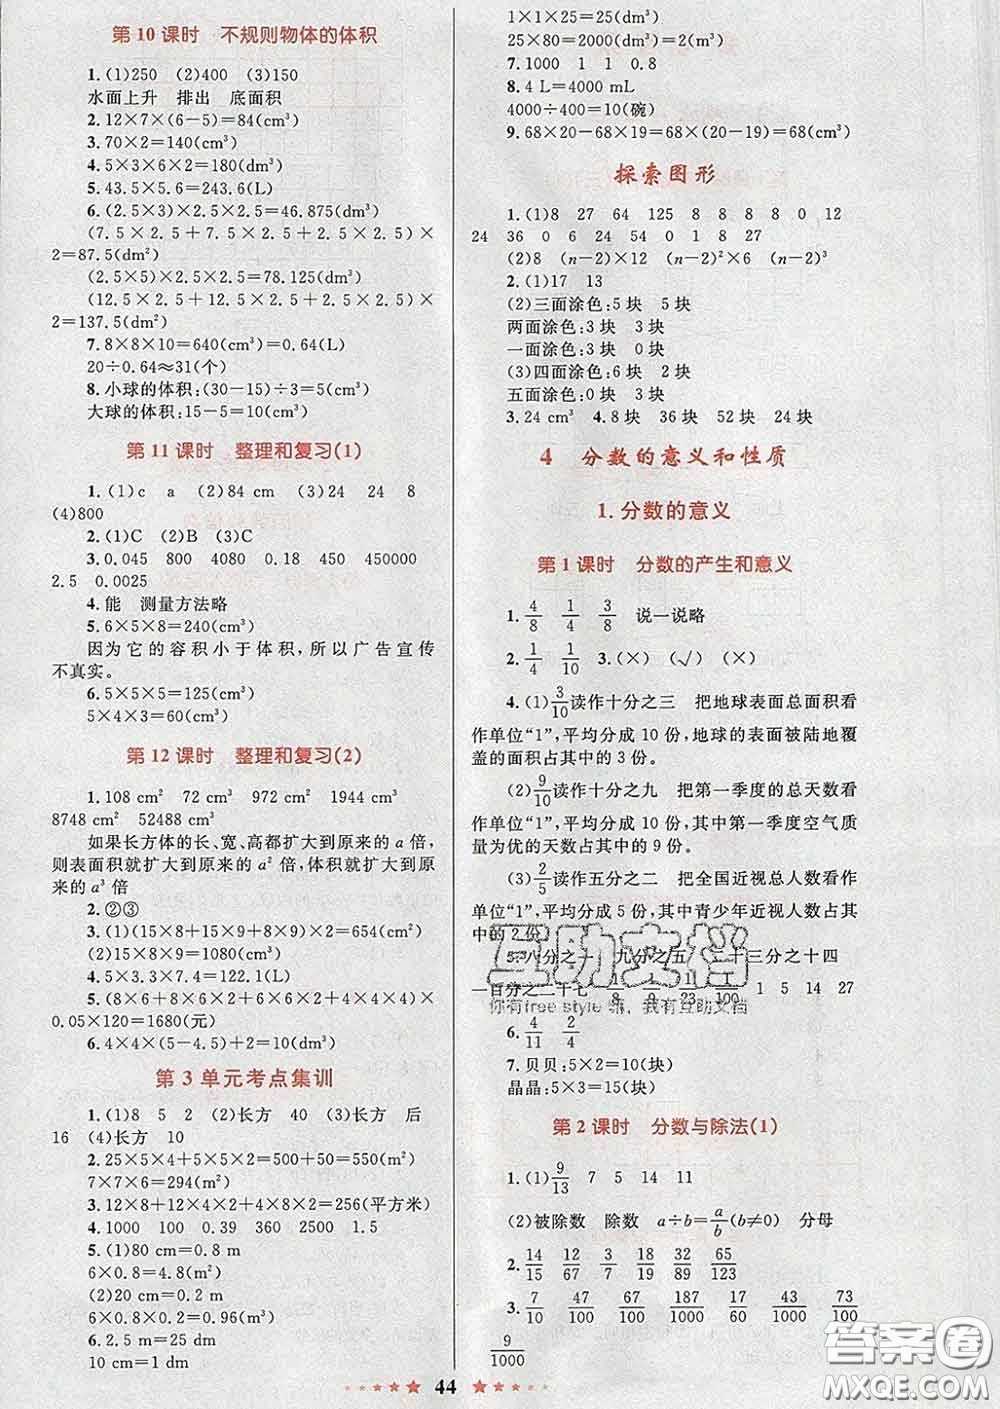 第 10 课时 不规则物体的体积
1.(1)250 (2)400 (3)150
水面上升 排出 底面积
2.12×7×(6-5)=84(cm³)
3.70×2=140(cm³)
4.5×3×6×2=180(dm³)
5.43.5×5.6=243.6(L)
6.(2.5×3)×2.5×2.5=46.875(dm³)
(7.5×2.5+7.5×2.5+2.5×2.5)×
2=87.5(dm²)
(2.5×5)×2.5×2.5=78.125(dm³)
(12.5×2.5+12.5×2.5+2.5×2.5)
×2=137.5(dm²)
7.8×8×10=640(cm³)=0.64(L)
20÷0.64≈31(个)
8.小球的体积:(30-15)÷3=5(cm³)
大球的体积:15-5=10(cm³)
第 11 课时 整理和复习(1)
1.(1)c a (2)84 cm (3)24 24 8
(4)800
2.(1)C (2)B (3)C
3.0.045 800 4080 0.18 450 450000
2.5 0.0025
4.能 测量方法略
5.6×5×8=240(cm³)
因为它的容积小于体积,所以广告宣传
不真实。
6.5×5×5=125(cm³)
5×4×3=60(cm³)
第 12 课时 整理和复习(2)
1.108 cm² 72 cm³ 972 cm² 1944 cm³
8748 cm² 52488 cm³
如果长方体的长、宽、高都扩大到原来的 a 倍,
则表面积就扩大到原来的 a² 倍,体积就扩大到原
来的 a³ 倍
2.②③
3.(1)(15×8+15×9+8×9)×2=654(cm²)
(2)15×8×9=1080(cm³)
4.5.5×3×7.4=122.1(L)
5.(8×6+8×6×2+6×6×2+4×4×4)×
0.05×120=1680(元)
6.4×4×(5-4.5)+2=10(dm³)
第 3 单元考点集训
1.(1)8 5 2 (2)长方 40 (3)长方 后
16 (4)长方 10
2.25×5×4+5×5×2=500+50=550(cm²)
7×7×6=294(m²)
3.12×8+12×4×2+4×8×2=256(平方米)
4.1000 100 0.39 360 2500 1.5
5.(1)80 cm=0.8 m
6×0.8=4.8(m²)
(2)20 cm=0.2 m
6×0.8×0.2=0.96(m³)
6.2.5 m=25 dm
10 cm=1 dm
1×1×25=25(dm³)
25×80=2000(dm³)=2(m³)
7.1000 1 1 0.8
8.4 L=4000 mL
4000÷400=10(碗)
9.68×20-68×(20-19)=68(cm³)
探索图形
1.(1)8 27 64 125 8 8 8 8 0 12
24 36 0 6 24 54 0 1 8 27
(2)8 (n-2)×12 (n-2)²×6 (n-2)³
2.(1)17 13
(2)三面涂色:5 块 5 块
两面涂色:3 块 3 块
一面涂色:3 块 0 块
(3)四面涂色:6 块 2 块
五面涂色:3 块 5 块
3.24 cm³ 4.8 块 36 块 52 块 24 块
4 分数的意义和性质
1.分数的意义
第 1 课时 分数的产生和意义
1. 4/8 1/4 3/8 说一说略
2. 1/4 1/10 3.(×) (√) (×)
4.(1)3/10读作十分之三 把地球表面总面积看
作单位“1”,平均分成 10 份,地球的表面被陆地覆
盖的面积占其中的 3 份。
(2)9/10读作十分之九 把第一季度的总天数看
作单位“1”,平均分成 10 份,其中第一季度空气质
量为优的天数占其中的 9 份。
(3)2/5读作五分之二 把全国近视总人数看作
单位“1”,平均分成 5 份,其中青少年近视人数占其
中的 2 份
5.八分之一 九分之五 二十三分之十四
一百分之二十七 1/8 1/9 1/23 1/100 1 5 14 27
互助文档
你有free style 嘛,我有互助文档
6. 4/11 2/4
7.贝贝:5×2=10(块)
晶晶:5×3=15(块)
第 2 课时 分数与除法(1)
1.(1)9/13 7 5 14 11
(2)被除数 除数 a÷b=a/b(b≠0) 分母
2. 14/15 12/67 3/7 18/19 32/32 65/123
3. 7/10 47/100 67/100 187/1000 17/60 43/1000 73/100
9/1000
44
答案圈
MXQE.COM